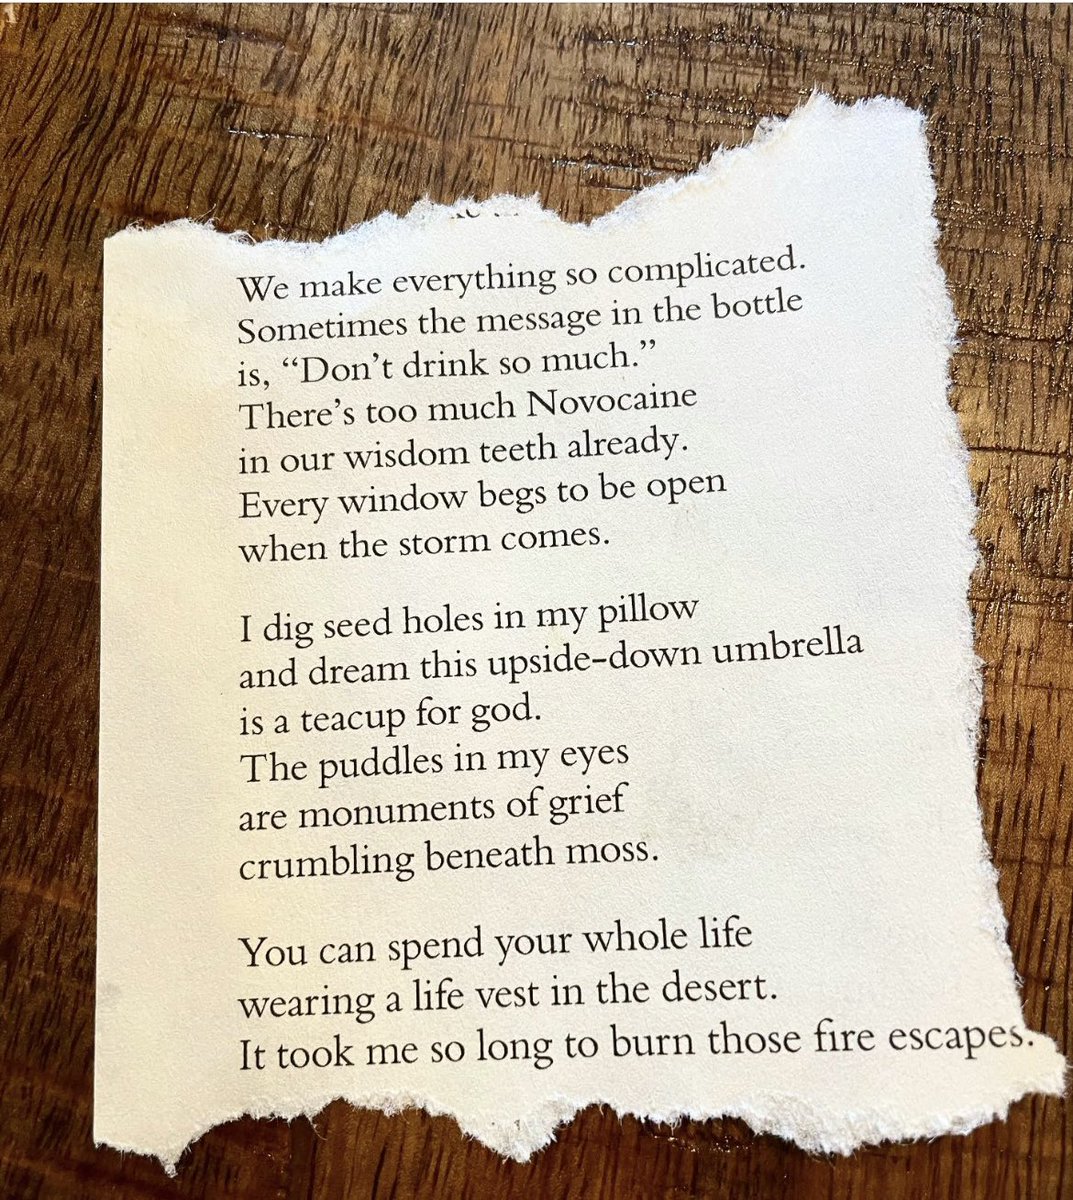 We make everything so complicated.
Sometimes the message in the bottle
is, “Don’t drink so much.”
There’s too much Novocaine
in our wisdom teeth already.
Every window begs to be open
when the storm comes.
I dig seed holes in my pillow
and dream this upside-down umbrella
is a teacup for god.
The puddles in my eyes
are monuments of grief
crumbling beneath moss.
You can spend your whole life
wearing a life vest in the desert.
It took me so long to burn those fire escapes.